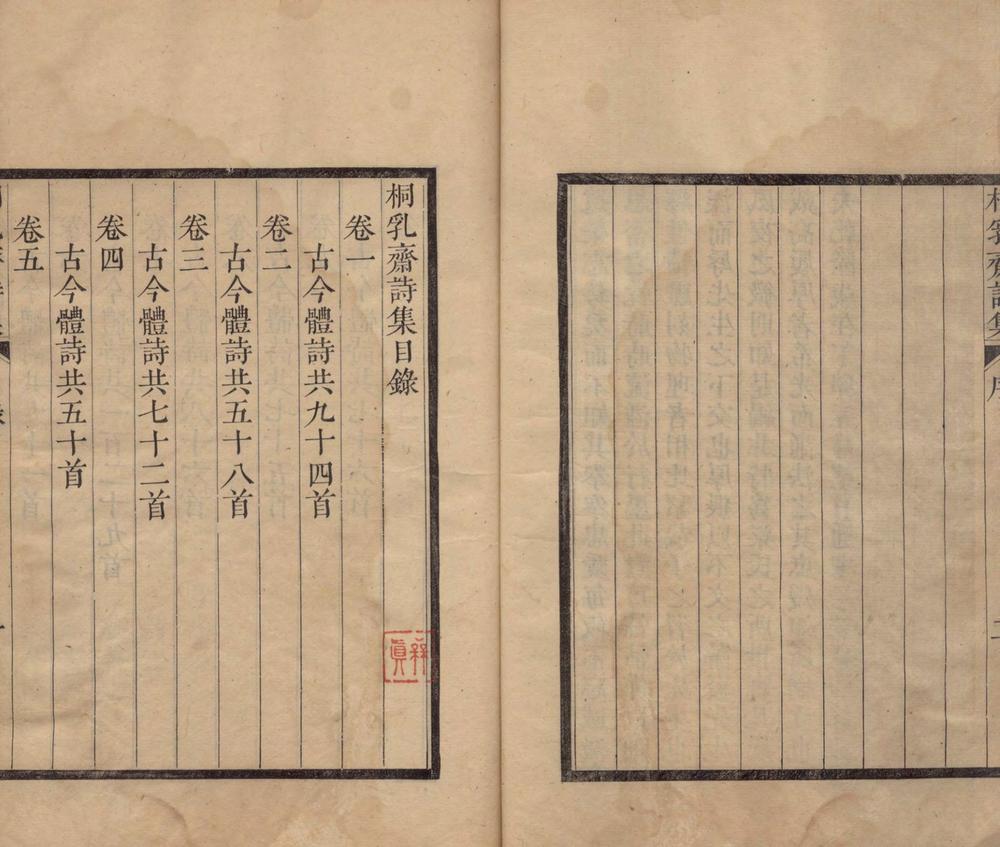 桐乳齋詩集
序
桐乳齋詩集目錄
卷一
古今體詩共九十四首
卷二
古今體詩共五十八首
卷三
古今體詩共七十二首
卷四
古今體詩共五十首
卷五